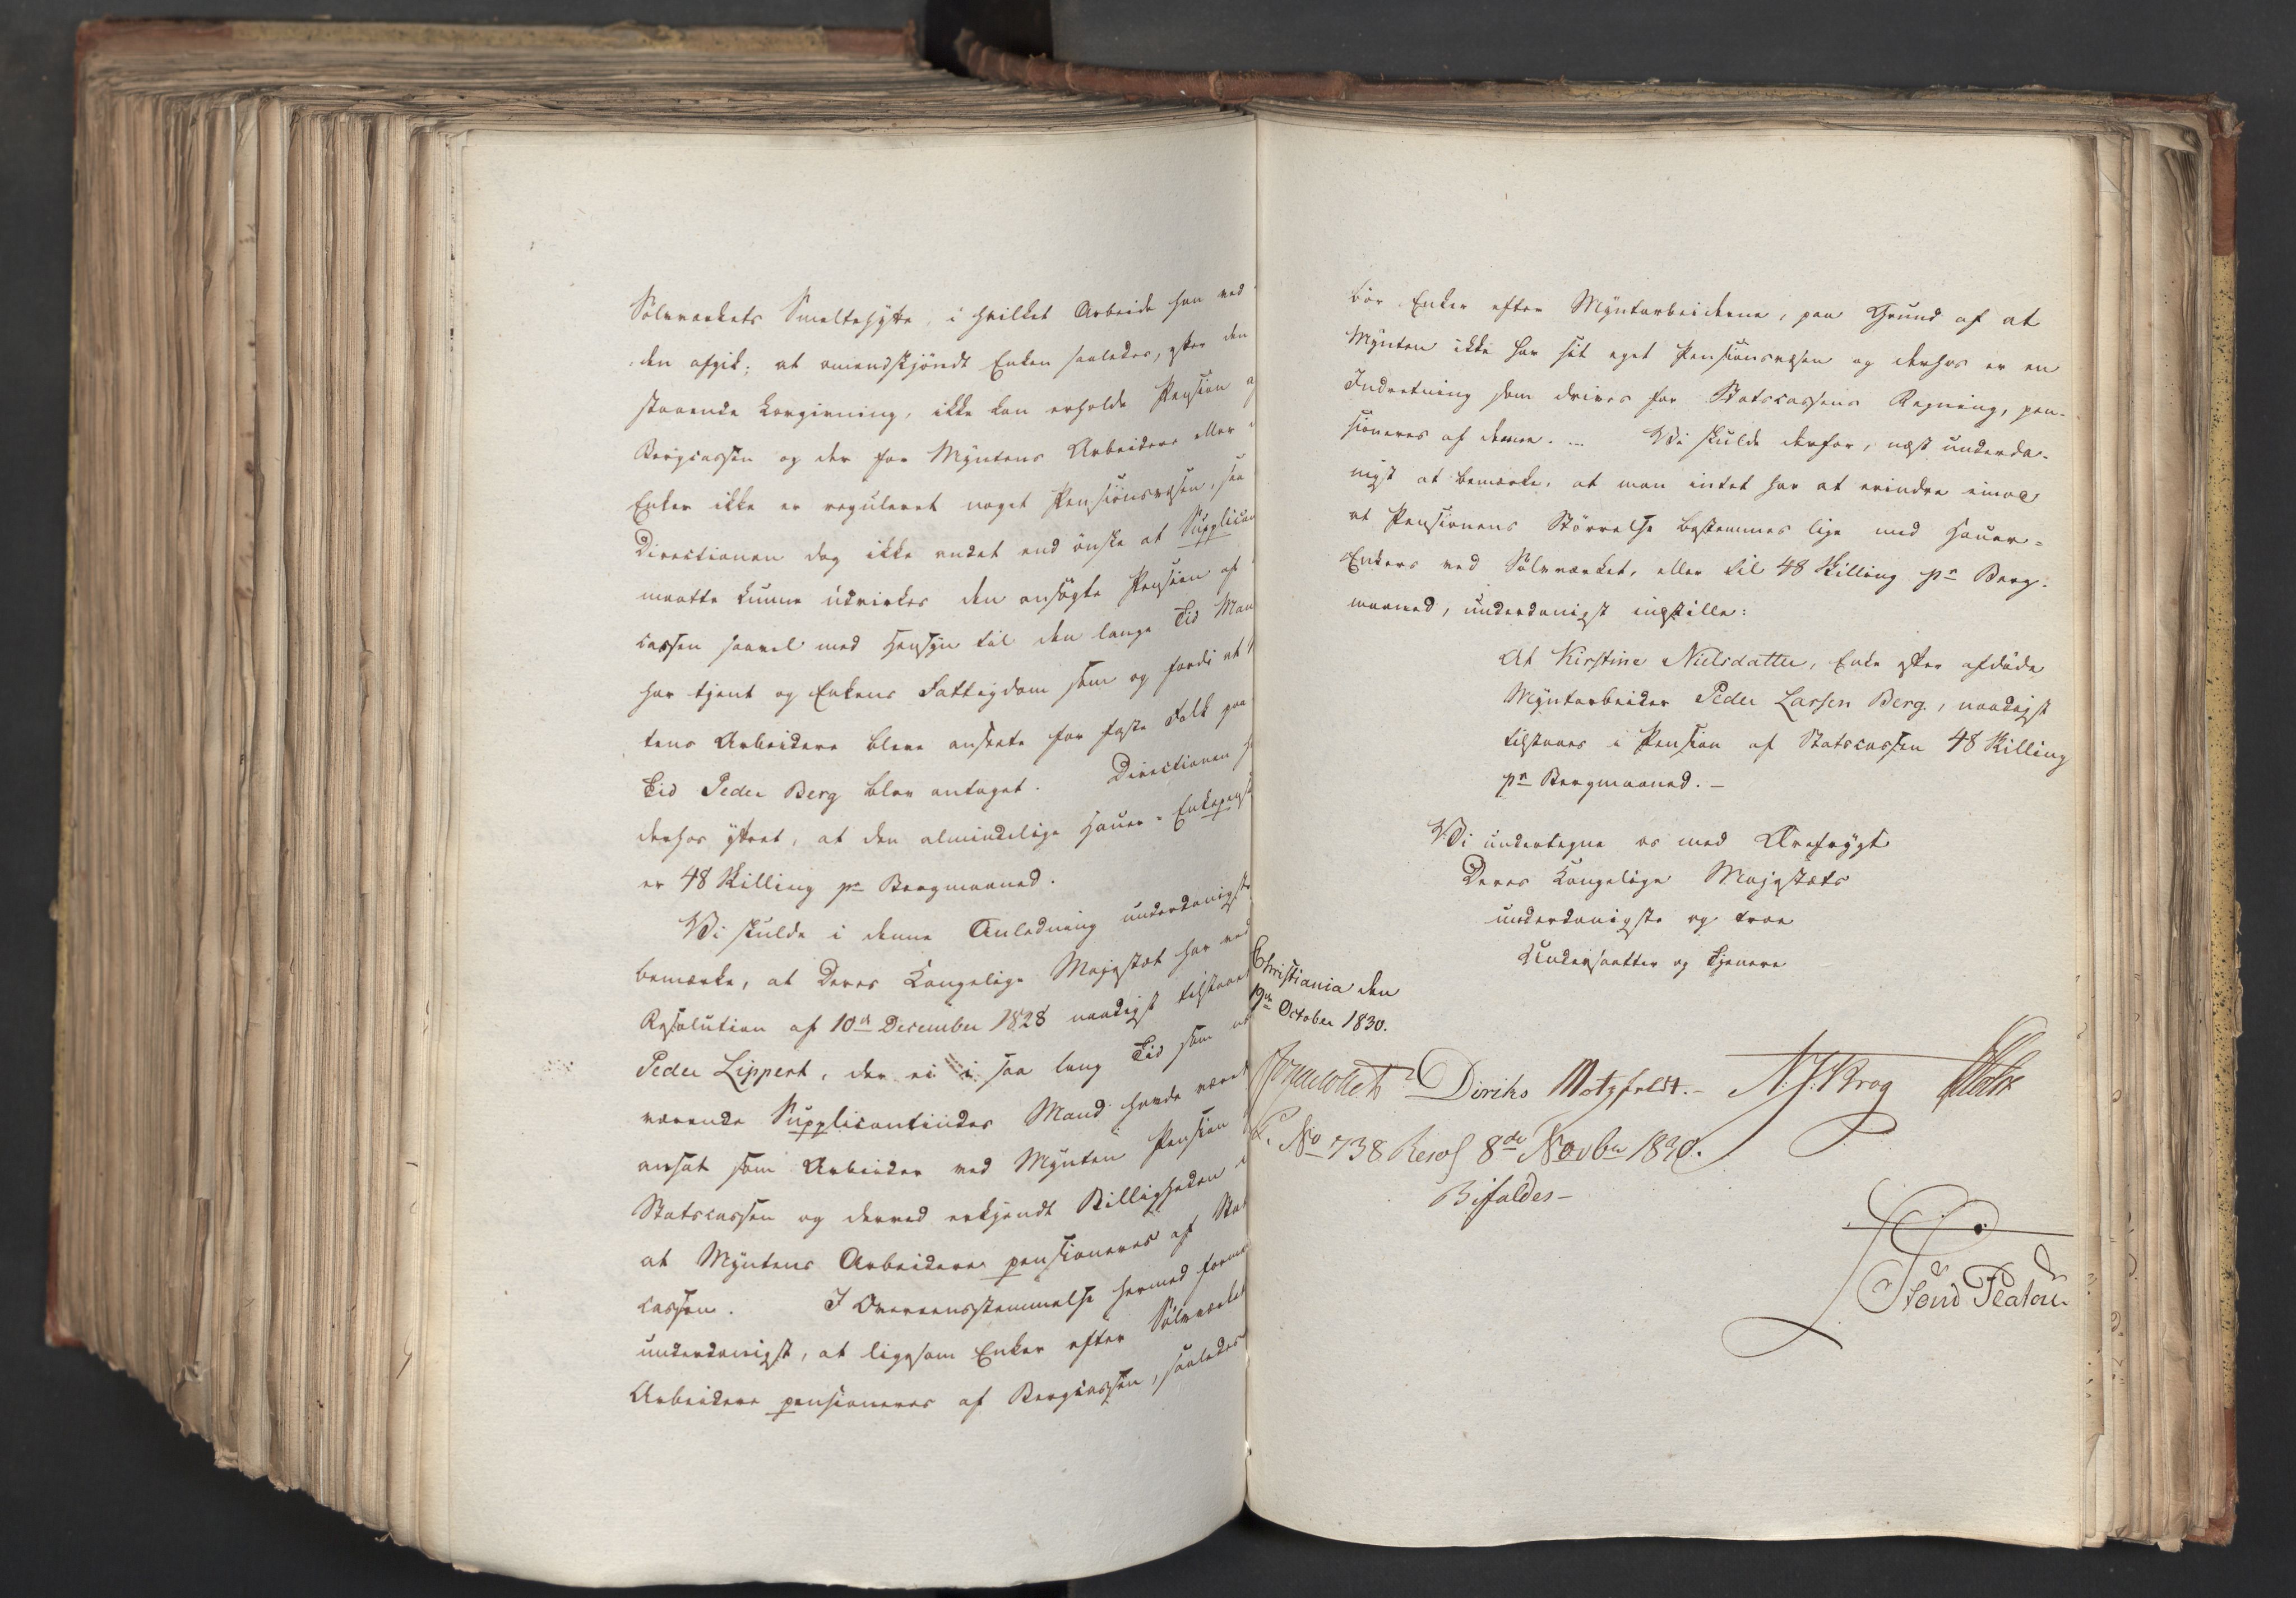 Sølvværkets Smeltehytte, i hvilket Arbeide han ved
den afgik; at omendskjöndt Enken saaledes, efter den
staaende Lovgivning, ikke kan erholde Pension af
Bergcassen og der for Myntens Arbeidere eller
Enker ikke er reguleret noget Pensionsvæsen, saa
Directionen dog ikke andet end önske at Supplican
maatte kunne udvirkes den ansögte Pension af
cassen saavel med Hensyn til den lange Tid Man
har tjent og Enkens Fattigdom som og fordi at
tens Arbeidere bleve ansete for faste Folk paa
Tid Peder Berg blev antaget. Directionen
derhos yttret, at den almindelige Hauer-Enkepens
er 48 Skilling pr Bergmaaned.
Vi skulde i denne Anledning underdanigst
bemærke, at Deres Kongelige Majestæt har ved
Resolution af 10de December 1828 naadigst tilstaaet
Peder Lippert, der ei i saa lang Tid som
værende Supplicantindes Mand havde været
ansat som Arbeider ved Mynten Pension
Statscassen og derved erkjendt Billigheden
at Myntens Arbeidere pensioneres af Stat
cassen. I Overeensstemmelse hermed forme
underdanigst, at ligesom Enker efter Sølvværket
Arbeidere pensioneres af Bergcassen, saaledes
bør Enker efter Myntarbeiderne, paa Grund af at
Mynten ikke har sit eget Pensionsvæsen og derhos er en
Indretning som drives for Statscassens Regning, pen-
sioneres af denne. — Vi skulde derfor, næst underda-
nigst at bemærke, at man intet har at erindre imod
at Pensionens Størrelse bestemmes lige med Hauer-
Enkers ved Sølvværket, eller til 48 Skilling pr Berg-
maaned, underdanigst indstille:
At Kirstine Nielsdatter, Enke efter afdøde
Myntarbeider Peder Larsen Berg, naadigst
tilstaaes i Pension af Statscassen 48 Skilling
pr Bergmaaned. —
Vi undertegne os med Ærefrygt
Deres Kongelige Majestæts
underdanigste og troe
Undersaatter og Tjenere
Christiania den
19de October 1830.
Diriks Motzfeldt. — N. J. Krog
No 738 Resol 8de Novbr 1830.
Bifaldes —